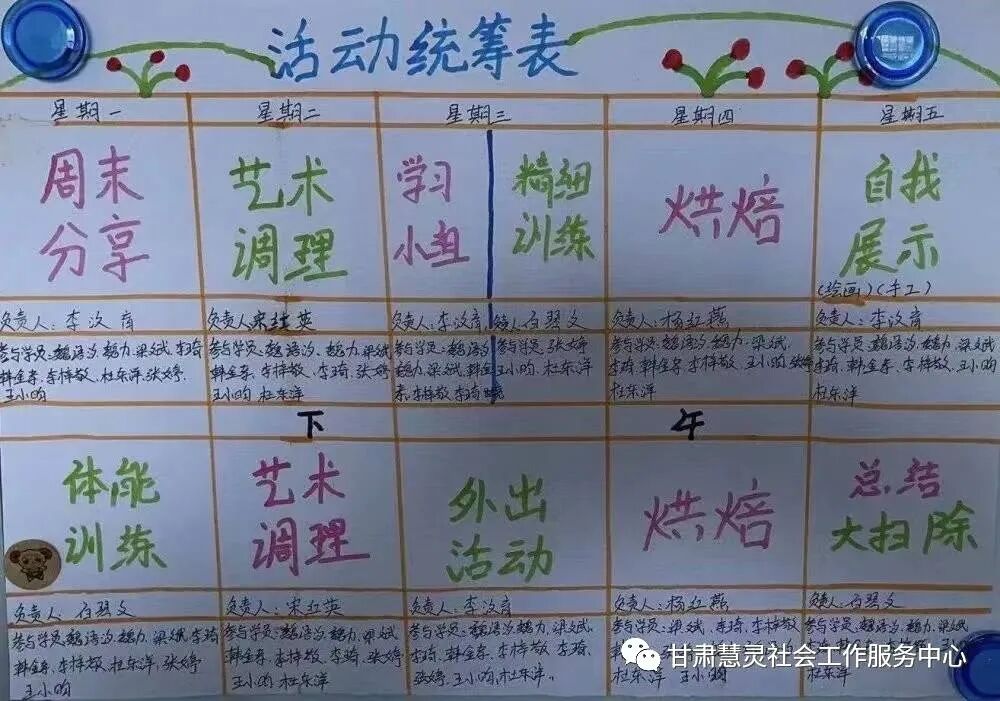 活动统筹表
星期一
星期二
星期三
星期四
星期五
周末
分享
艺术
调理
学习
小组
精细
训练
烘焙
自我
展示
(绘画)(手工)
负责人:李汶育
负责人:宋红英
负责人:李汶育
负责人:白碧文
负责人:杨红燕
负责人:李汶育
参与学员:魏浩为、魏力、梁斌、李琦
韩金东、李梓敬、杜东洋、张婷、
王小昀
参与学员:魏浩为、魏力、梁斌
韩金东、李梓敬、李琦、张婷
王小昀、杜东洋
参与学员:魏浩为
魏力、梁斌、韩金
东、李梓敬、李琦
参与学员:张婷
王小昀、杜东洋
参与学员:魏浩为、魏力、梁斌、
李琦、韩金东、李梓敬、王小昀、张婷
杜东洋
参与学员:魏浩为、魏力、梁斌
李琦、韩金东、李梓敬、王小昀、
杜东洋
下
午
体能
训练
艺术
调理
外出
活动
烘焙
总结
大扫除
负责人:白碧文
负责人:宋红英
负责人:李汶育
负责人:杨红燕
负责人:白碧文
参与学员:魏浩为、魏力、梁斌、李琦
韩金东、李梓敬、杜东洋、张婷
王小昀
参与学员:魏浩为、魏力、梁斌
韩金东、李梓敬、李琦、张婷
王小昀、杜东洋
参与学员:魏浩为、魏力、梁斌、
李琦、韩金东、李梓敬、李琦、
张婷、王小昀、杜东洋。
参与学员:梁斌、李琦、李梓敬
杜东洋 王小昀
参与学员:魏浩为、魏力、梁斌
杜东洋
甘肃慧灵社会工作服务中心